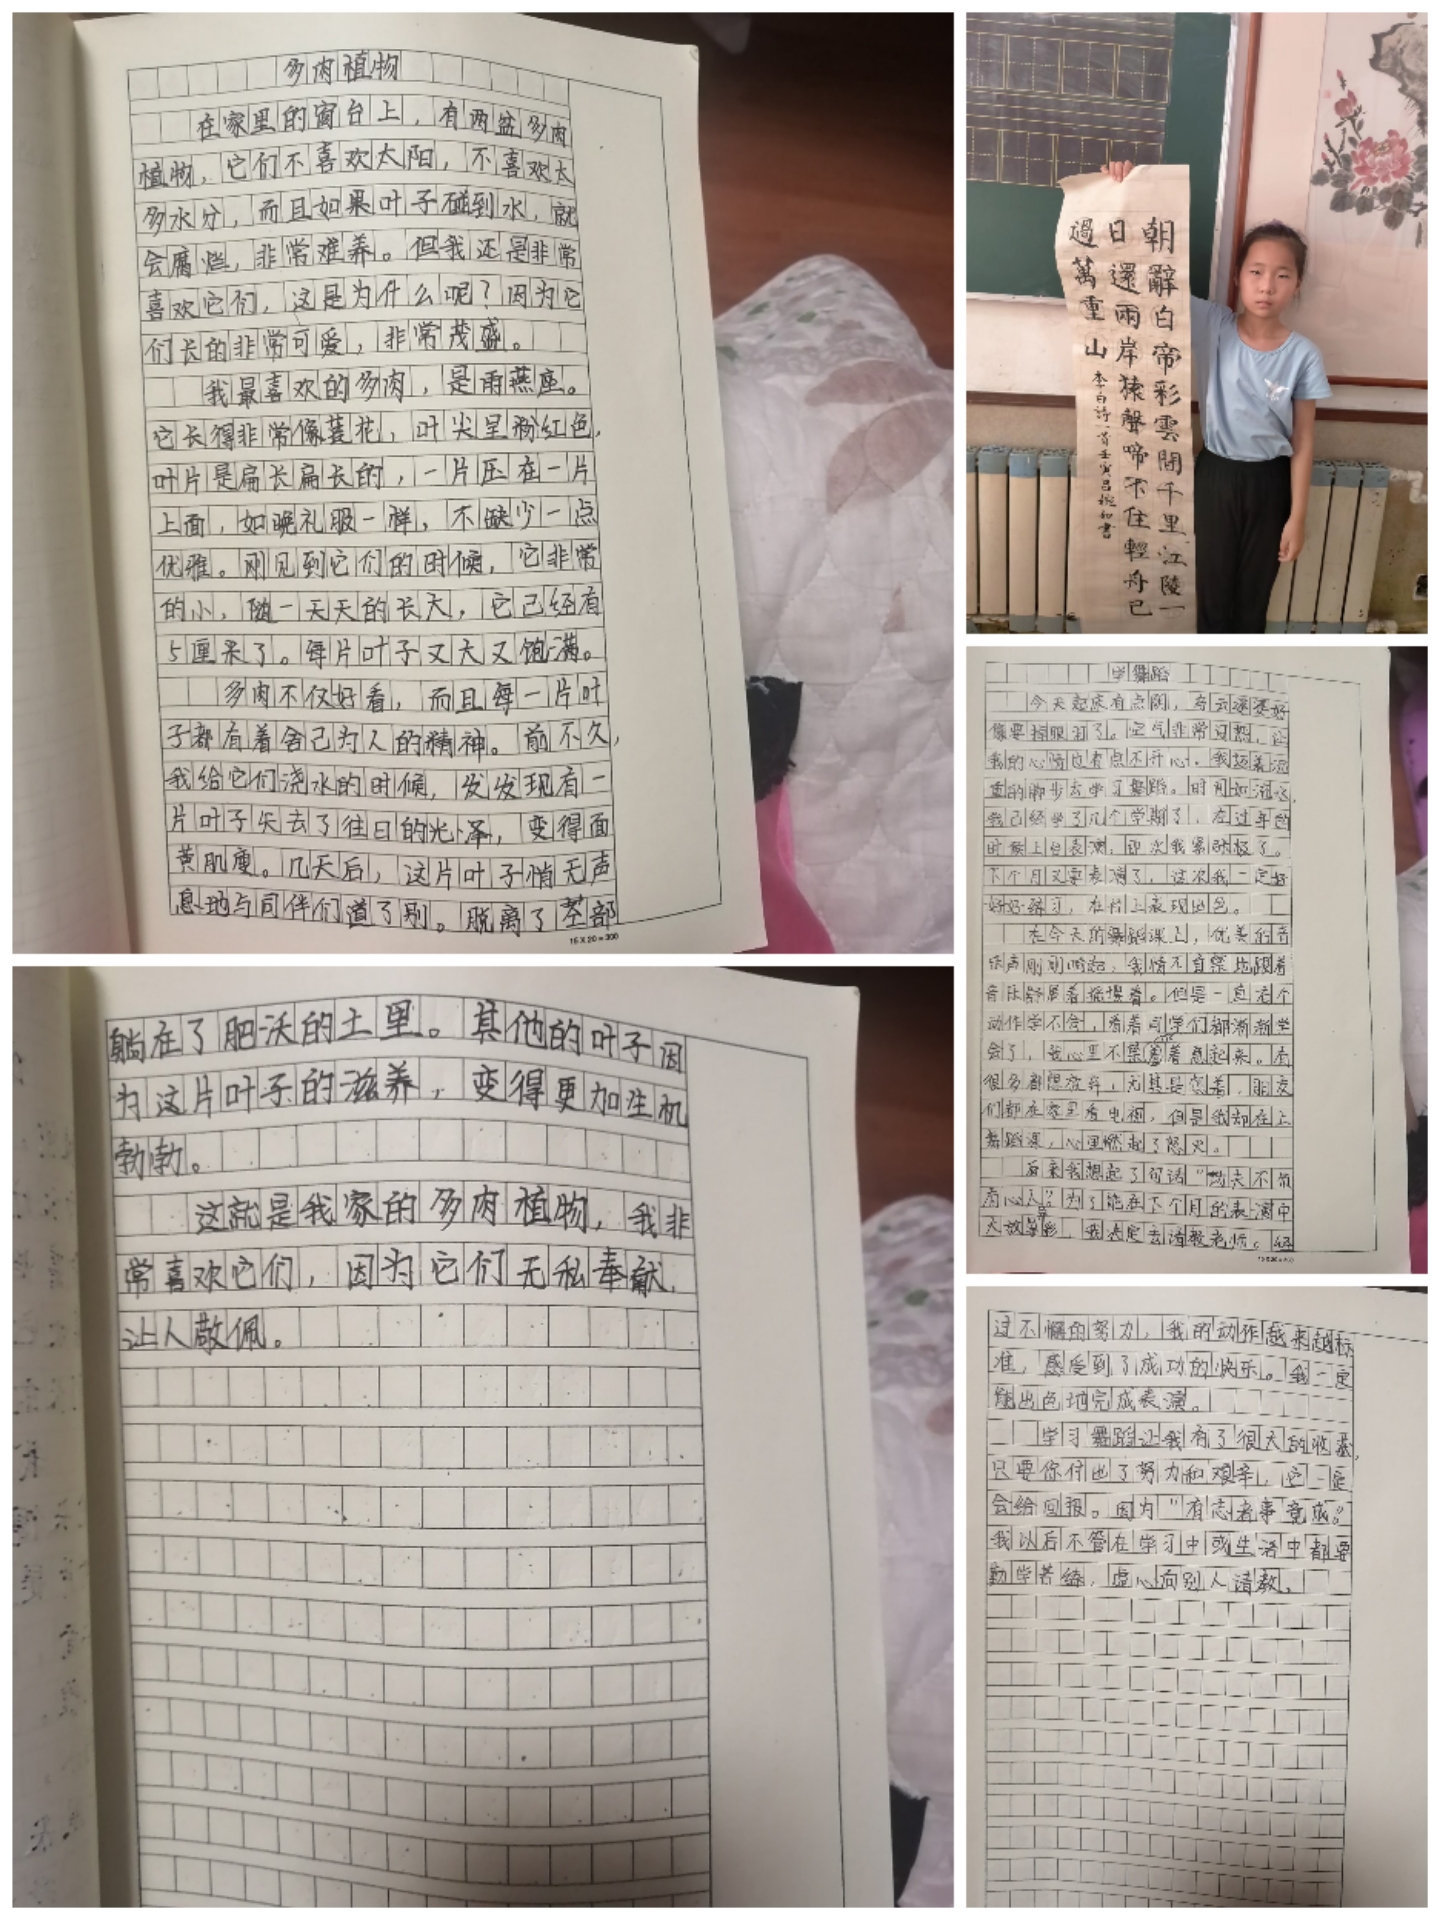 多肉植物
在家里的窗台上，有两盆多肉
植物，它们不喜欢太阳，不喜欢太
多水分，而且如果叶子碰到水，就
会腐烂，非常难养。但我还是非常
喜欢它们，这是为什么呢？因为它
们长的非常可爱，非常茂盛。
我最喜欢的多肉，是雨燕座。
它长得非常像莲花，叶尖呈粉红色，
叶片是扁长扁长的，一片压在一片
上面，如晚礼服一样，不缺少一点
优雅。刚见到它们的时候，它非常
的小，随一天天的长大，它已经有
5厘米了。每片叶子又大又饱满。
多肉不仅好看，而且每一片叶
子都有着舍己为人的精神。前不久，
我给它们浇水的时候，发发现有一
片叶子失去了往日的光泽，变得面
黄肌瘦。几天后，这片叶子悄无声
息地与同伴们道了别。脱离了茎部
15×20=300
躺在了肥沃的土里。其他的叶子因
为这片叶子的滋养，变得更加生机
勃勃。
这就是我家的多肉植物，我非
常喜欢它们，因为它们无私奉献，
让人敬佩。
朝辭白帝彩雲間千里江陵一
日還兩岸猿聲啼不住輕舟已
過萬重山
李白詩一首壬寅書
学舞蹈
今天起床有点阴，乌云密要好
像要掉眼泪了。空气非常闷热，让
我的心情也有点不开心，我拖着沉
重的脚步去学习舞蹈。时间如流水，
我已经学了几个学期了，在过年的
时候上台表演，那次我紧张极了。
下个月又要表演了，这次我一定好
好好练习，在台上表现出色。
在今天的舞蹈课上，优美的音
乐声刚刚响起，我情不自禁地跟着
音乐舒展着摇摆着。但是一直有个
动作学不会，看着同学们都渐渐学
会了，我心里不禁着急起来。有
很多都想放弃，尤其是想着，朋友
们都在家里看电视，但是我却在上
舞蹈课，心里燃起了怒火。
后来我想起了句话“功夫不负
有心人”为了能在下个月的表演中
大放异彩，我决定去请教老师。经
15×20=300
过不懈的努力，我的动作越来越标
准，感受到了成功的快乐。我一定
能出色地完成表演。
学习舞蹈让我有了很大的收获，
只要你付出了努力和艰辛，它一定
会给回报。因为“有志者事竟成。”
我以后不管在学习中或生活中都要
勤学苦练，虚心向别人请教。